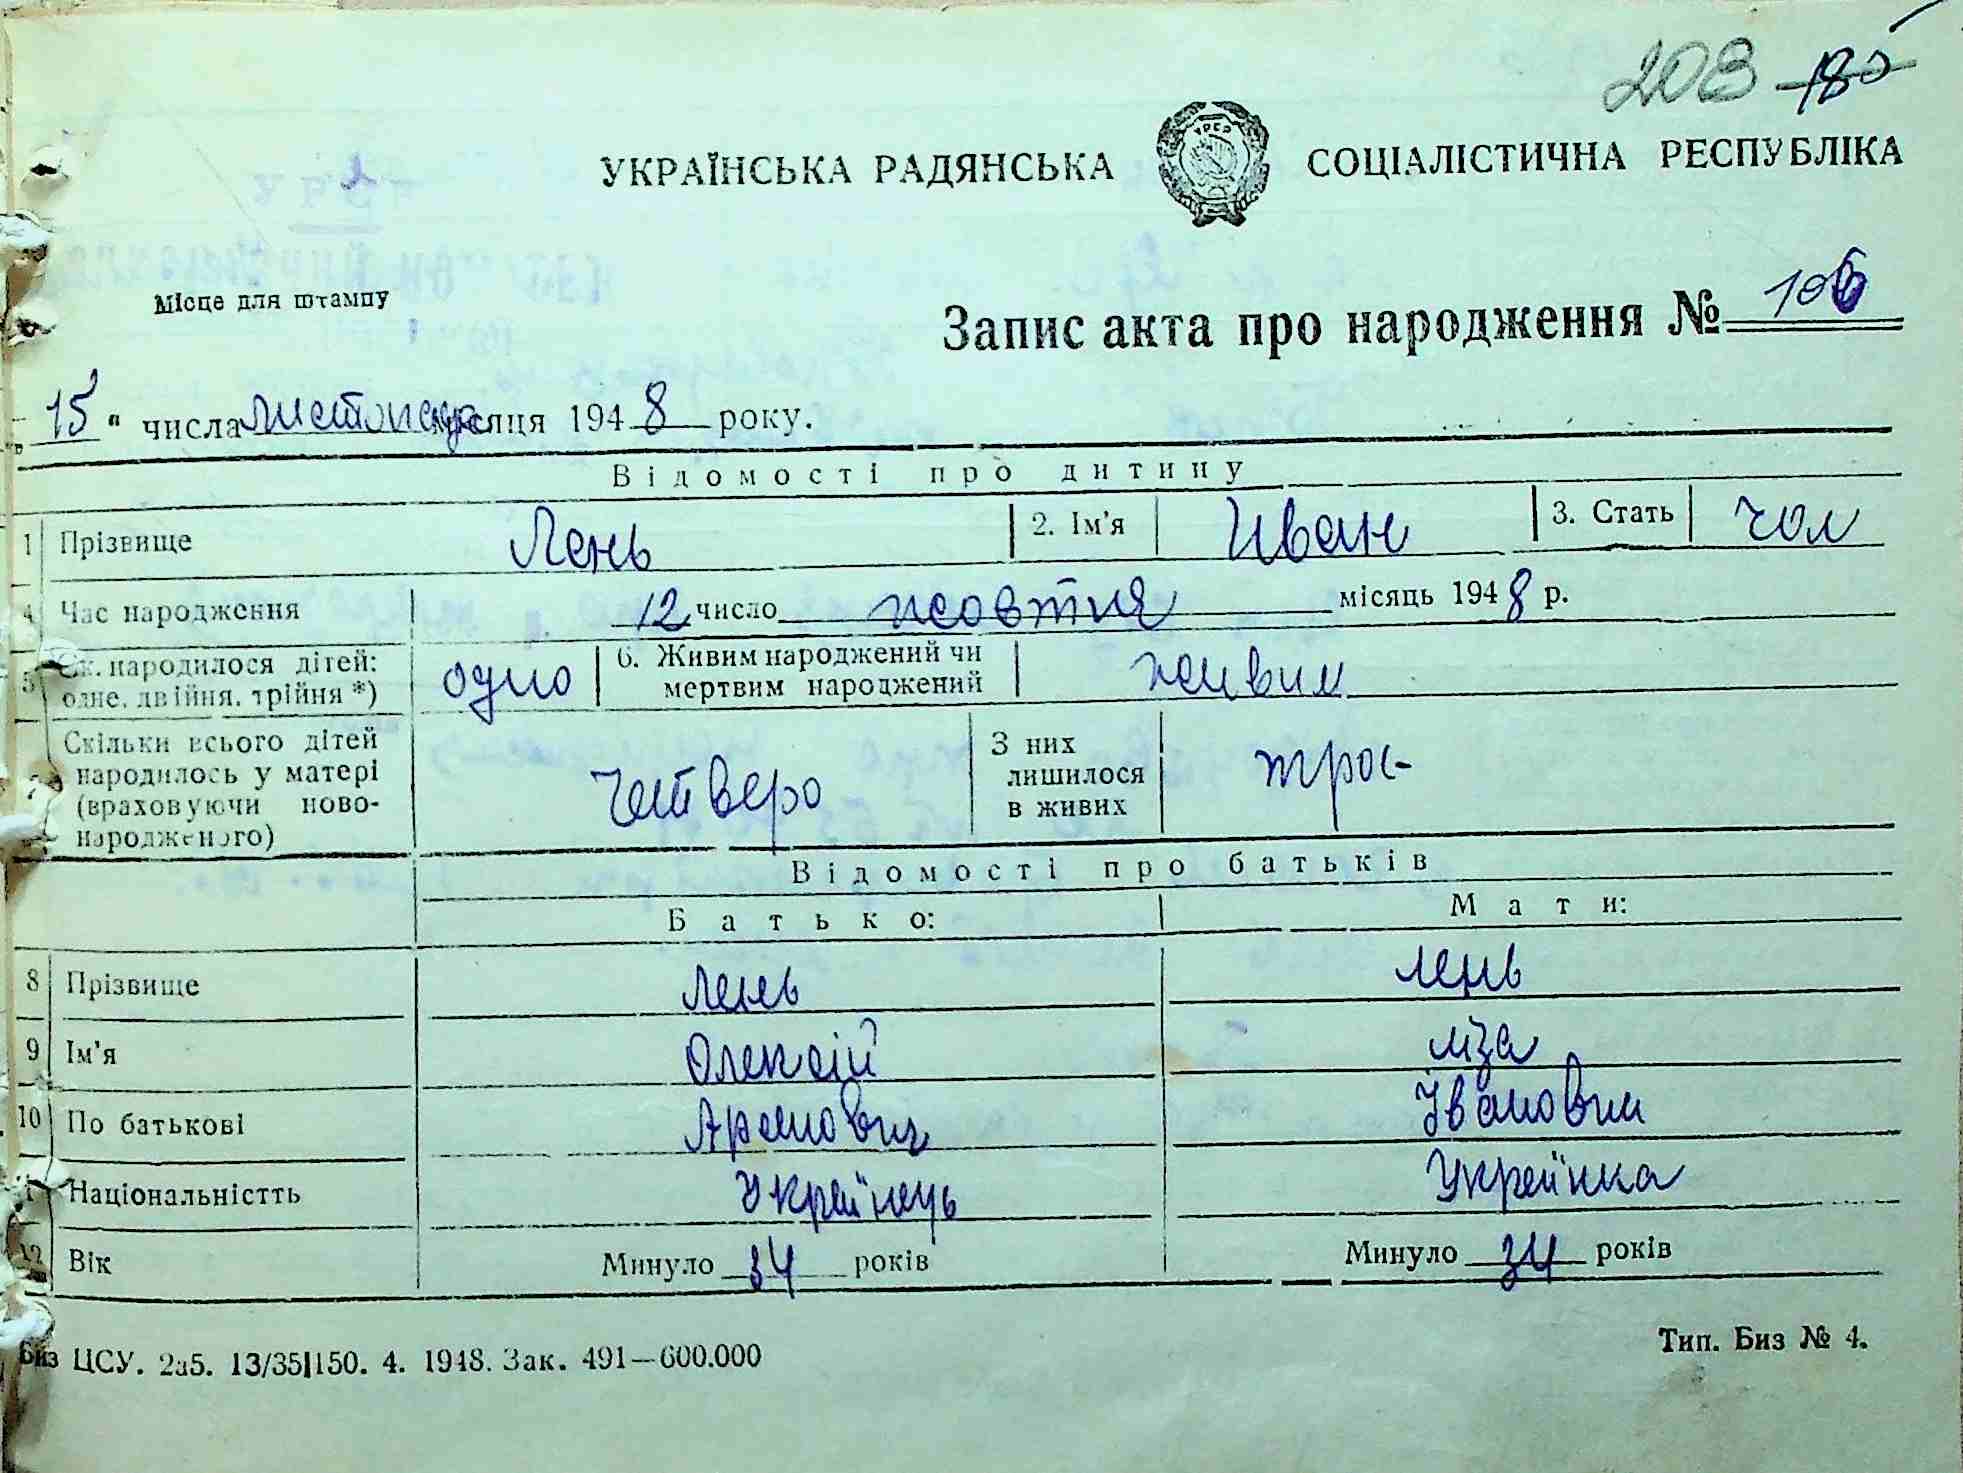 208 185
УКРАЇНСЬКА РАДЯНСЬКА СОЦІАЛІСТИЧНА РЕСПУБЛІКА
УРСР
Місце для штампу
Запис акта про народження № 106
„ 15 " числа листопада місяця 1948 року.
Відомості про дитину
1 Прізвище Лень 2. Ім'я Иван 3. Стать чол
4 Час народження 12 число жовтня місяць 1948 р.
5 Ск. народилося дітей: одне, двійня, трійня *) одно 6. Живим народжений чи мертвим народжений живим
7 Скільки всього дітей народилось у матері (враховуючи новонародженого) четверо З них лишилося в живих троє
Відомості про батьків
Батько: Мати:
8 Прізвище Лень Лень
9 Ім'я Олексій Ліза
10 По батькові Івановна
11 Національністть Українець Українка
12 Вік Минуло 34 років Минуло 34 років
Биз ЦСУ. 2а5. 13/35|150. 4. 1948. Зак. 491—600.000 Тип. Биз № 4.